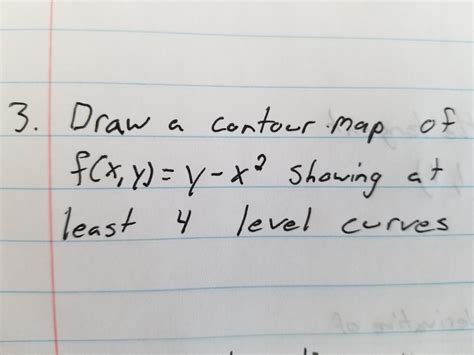 3. Draw a contour map of
f(x,y) = y - x² showing at
least 4 level curves